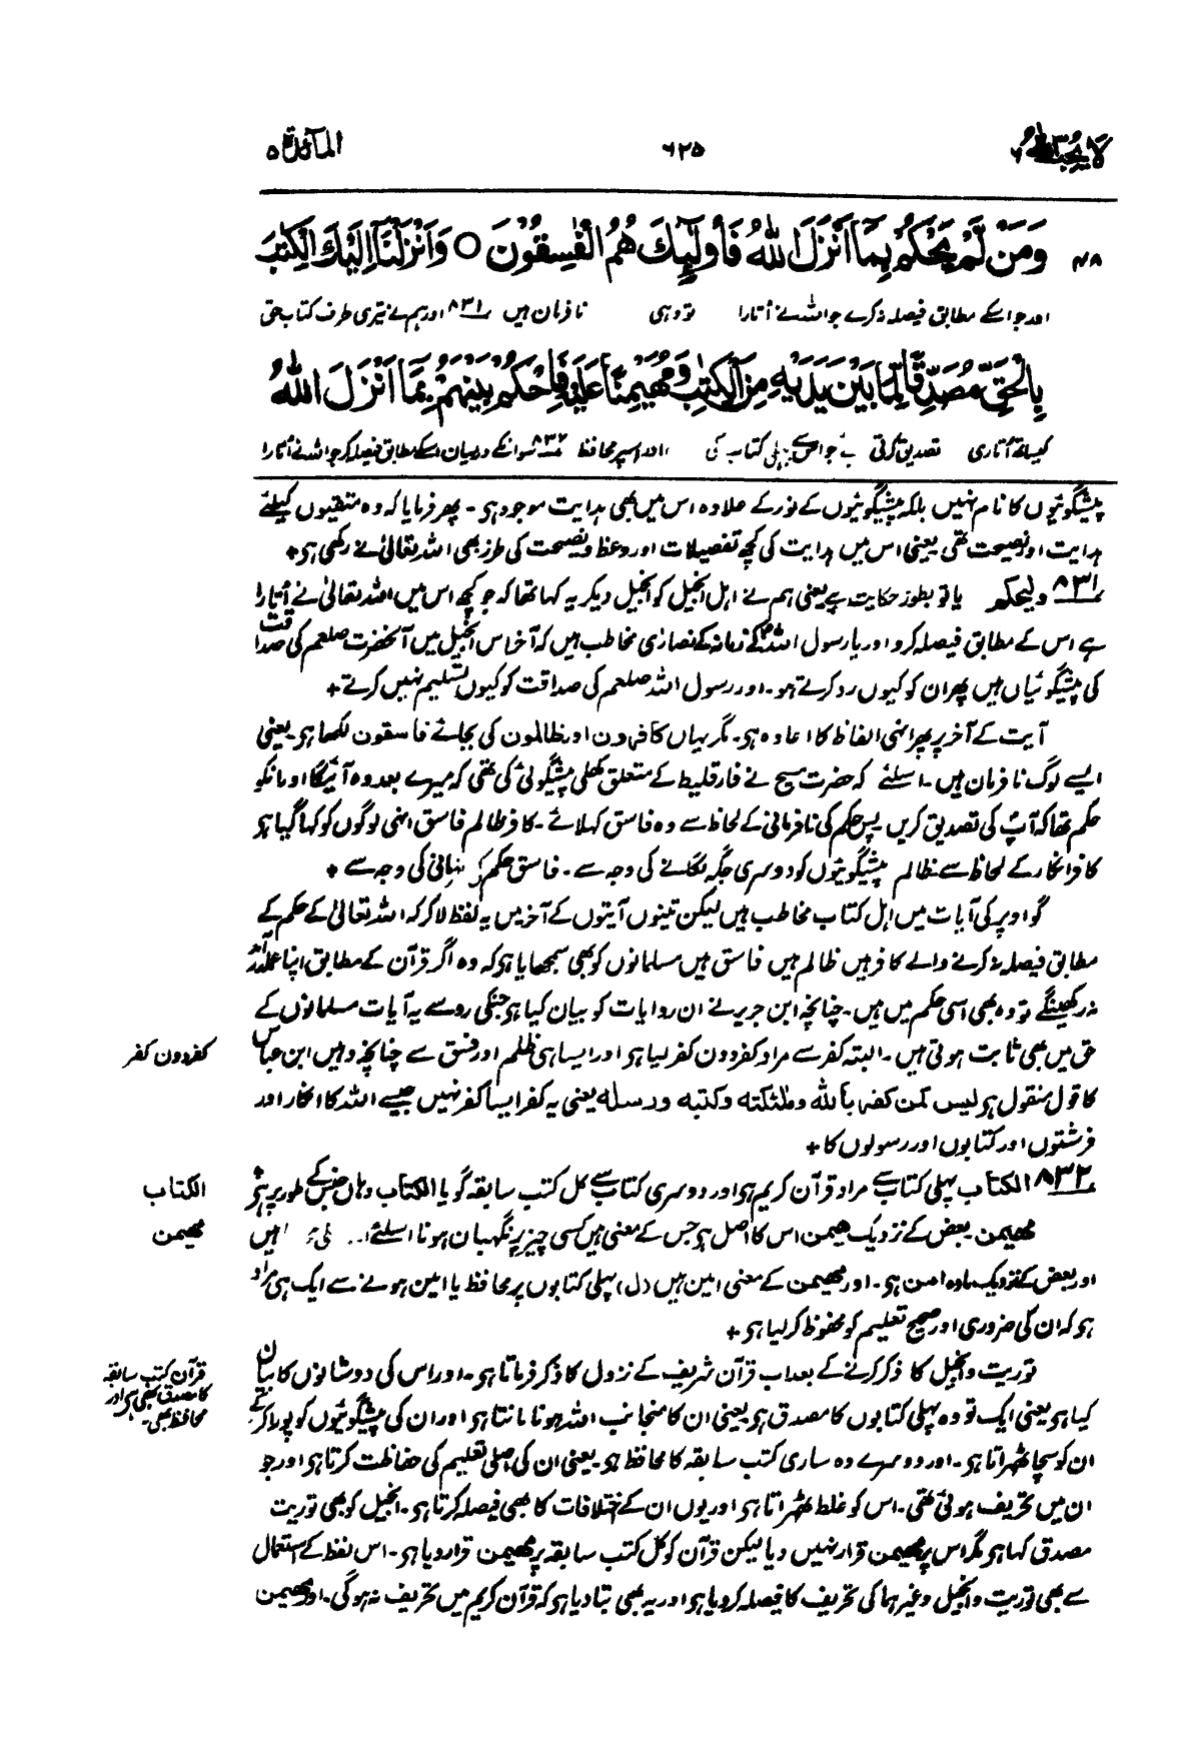 لَا يُحِبُّ اللّٰهُ ٦
٦٢٥
المآئدة ٥
وَمَنْ لَّمْ يَحْكُمْ بِمَآ اَنْزَلَ اللّٰهُ فَاُولٰٓئِكَ هُمُ الْفٰسِقُوْنَ ○ وَاَنْزَلْنَآ اِلَيْكَ الْكِتٰبَ
٤٨
اور جو اسکے مطابق فیصلہ نہ کرے جو اللہ نے اُتارا تو وہی نافرمان ہیں ۸۳۱ اور ہم نے تیری طرف کتاب حق
بِالْحَقِّ مُصَدِّقًا لِّمَا بَيْنَ يَدَيْهِ مِنَ الْكِتٰبِ وَمُهَيْمِنًا عَلَيْهِ فَاحْكُمْ بَيْنَهُمْ بِمَآ اَنْزَلَ اللّٰهُ
کیساتھ اُتاری تصدیق کرتی ہے جو اسکے پہلی کتاب کی اور اسپر محافظ ۸۳۲ سو انکے درمیان اسکے مطابق فیصلہ کر جو اللہ نے اُتارا
پیشگوئیوں کا نام نہیں بلکہ پیشگوئیوں کے نور کے علاوہ اس میں بھی ہدایت موجود ہو۔ پھر فرمایا کہ وہ متقیوں کیلئے
ہدایت اور نصیحت تھی یعنی اس میں ہدایت کی کچھ تفصیلات اور وعظ ونصیحت کی طرز بھی اللہ تعالیٰ نے رکھی ہو+
۸۳۱ ولیحکم یا تو بطور حکایت ہے یعنی ہم نے اہل انجیل کو انجیل دیکر یہ کہا تھا کہ جو کچھ اس میں اللہ تعالیٰ نے اُتارا
ہے اس کے مطابق فیصلہ کرو اور یا رسول اللہ صلعم کے زمانہ کے نصاریٰ مخاطب ہیں کہ آخر اس انجیل میں آنحضرت صلعم کی صداقت
کی پیشگوئیاں ہیں پھر ان کو کیوں رد کرتے ہو۔ اور رسول اللہ صلعم کی صداقت کو کیوں تسلیم نہیں کرتے+
آیت کے آخر پر پھر انہی الفاظ کا اعادہ ہو۔ مگر یہاں کافرون اور ظالمون کی بجائے فاسقون لکھا ہو۔ یعنی
ایسے لوگ نافرمان ہیں۔ اسلئے کہ حضرت مسیح نے فارقلیط کے متعلق کھلی پیشگوئی کی تھی کہ میرے بعد وہ آئیگا اور انکو
حکم تھا کہ آپ کی تصدیق کریں پس حکم کی نافرمانی کے لحاظ سے وہ فاسق کہلائے۔ کافر ظالم فاسق انہی لوگوں کو کہا گیا ہو
کافر انکار کے لحاظ سے ظالم پیشگوئیوں کو دوسری جگہ لگانے کی وجہ سے۔ فاسق حکم کی نافرمانی کی وجہ سے +
گو اوپر کی آیات میں اہل کتاب مخاطب ہیں لیکن تینوں آیتوں کے آخر میں یہ لفظ لاکر کہ اللہ تعالیٰ کے حکم کے
مطابق فیصلہ نہ کرنے والے کافر ہیں ظالم ہیں فاسق ہیں مسلمانوں کو بھی سمجھایا ہو کہ وہ اگر قرآن کے مطابق اپنا عملدرآمد
نہ رکھینگے تو وہ بھی اسی حکم میں ہیں۔ چنانچہ ابن جریر نے ان روایات کو بیان کیا ہو جنکی روسے یہ آیات مسلمانوں کے
حق میں بھی ثابت ہوتی ہیں۔ البتہ کفر سے مراد کفر دون کفر لیا ہو اور ایسا ہی ظلم اور فسق سے چنانچہ وہیں ابن عباس
کفر دون کفر
کا قول منقول ہو لیس کمن کفر باللہ وملٰئکتہ وکتبہ ورسلہ یعنی یہ کفر ایسا کفر نہیں جیسے اللہ کا انکار اور
فرشتوں اور کتابوں اور رسولوں کا+
۸۳۲ الکتاب پہلی کتاب سے مراد قرآن کریم ہو اور دوسری کتاب سے کل کتب سابقہ گویا الکتاب وہاں جنس کے طور پر ہو
الکتاب
مھیمن بعض کے نزدیک ھیمن اس کا اصل ہو جس کے معنی ہیں کسی چیز پر نگہبان ہونا اسلئے
مھیمن
اور بعض کے نزدیک مادہ امن ہو۔ اور مھیمن کے معنی امین ہیں (ل) پہلی کتابوں پر محافظ یا امین ہونے سے ایک ہی مراد
ہو کہ ان کی ضروری اور صحیح تعلیم کو محفوظ کر لیا ہو+
توریت وانجیل کا ذکر کرنے کے بعد اب قرآن شریف کے نزول کا ذکر فرماتا ہو۔ اور اس کی دو شانوں کا بیان
قرآن کتب سابقہ
کا مصدق بھی ہو اور
محافظ بھی۔
کیا ہو یعنی ایک تو وہ پہلی کتابوں کا مصدق ہو یعنی ان کا منجانب اللہ ہونا مانتا ہو اور ان کی پیشگوئیوں کو پورا کرکے
ان کو سچا ٹھہراتا ہو۔ اور دوسرے وہ ساری کتب سابقہ کا محافظ ہو۔ یعنی ان کی اصلی تعلیم کی حفاظت کرتا ہو اور جو
ان میں تحریف ہوئی تھی۔ اس کو غلط ٹھہراتا ہو اور یوں ان کے اختلافات کا بھی فیصلہ کرتا ہو۔ انجیل کو بھی توریت
مصدق کہا ہو مگر اس پر مھیمن قرار نہیں دیا لیکن قرآن کو کل کتب سابقہ پر مھیمن قرار دیا ہو۔ اس لفظ کے استعمال
سے بھی توریت وانجیل وغیرہما کی تحریف کا فیصلہ کردیا ہو اور یہ بھی بتا دیا ہو کہ قرآن کریم میں تحریف نہ ہوگی۔ اور مھیمن